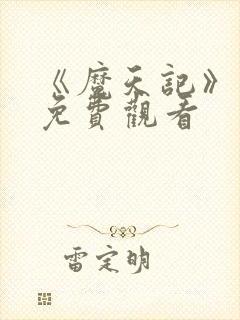 《魔天記》
免費觀看
雷定明